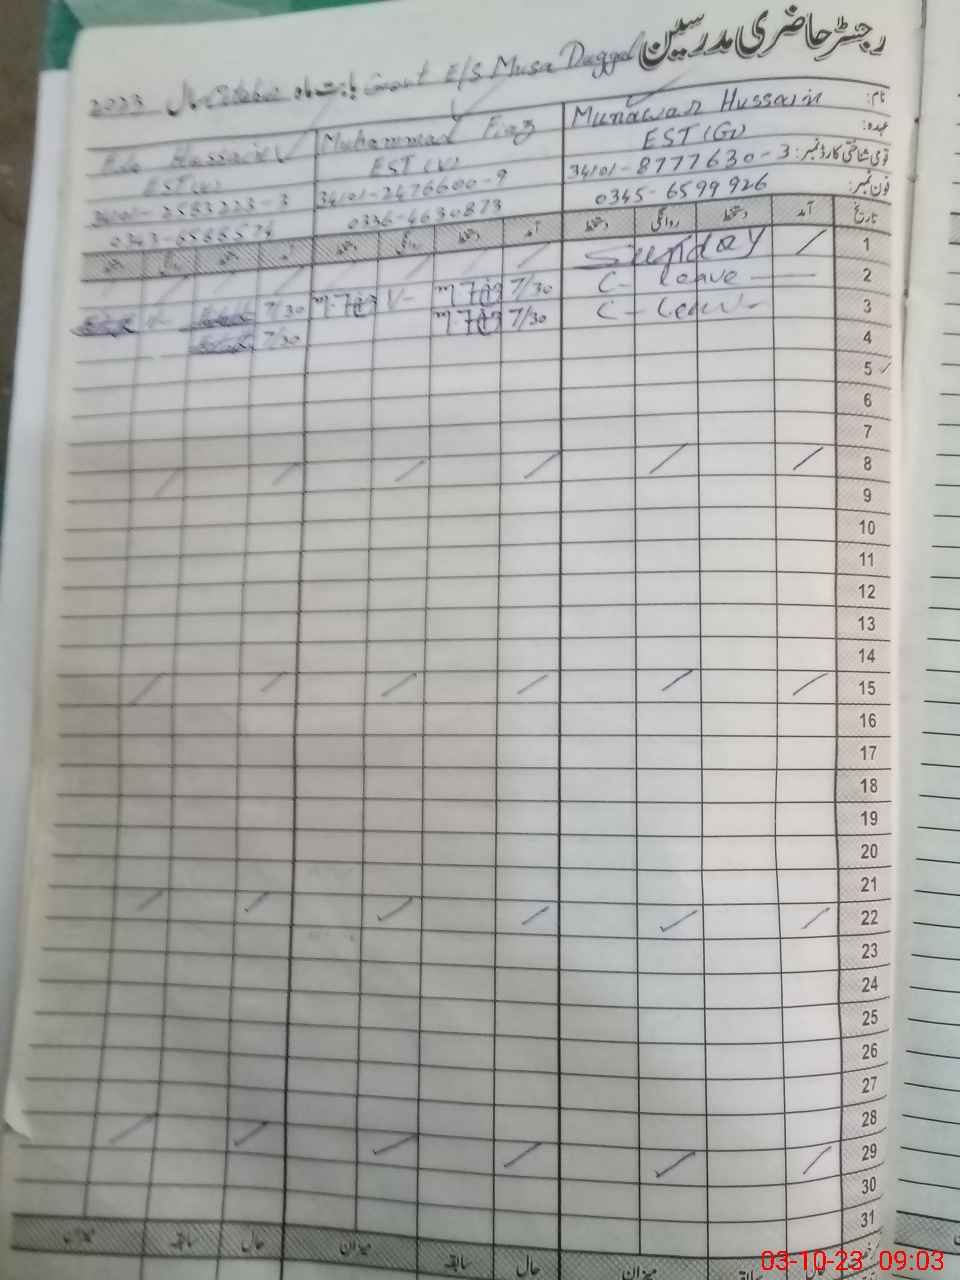 رجسٹر حاضری مدرسین
Govt E/S Musa Duggal بابت ماہ October سال 2023
نام: Munawar Hussain Muhammad Fiaz Hussain
عہدہ: EST (G) EST (V) EST (V)
قومی شناختی کارڈ نمبر: 34101-8777630-3 34101-2476600-9 34101-2583223-3
فون نمبر: 0345-6599926 0336-4630873 0343-6588574
تاریخ آمد دستخط روانگی دستخط آمد دستخط روانگی دستخط آمد دستخط روانگی دستخط
1 Sunday
2 C- leave 7/30 7/30
3 C- Leave 7/30 7/30
4
5
6
7
8
9
10
11
12
13
14
15
16
17
18
19
20
21
22
23
24
25
26
27
28
29
30
31
حال سابقہ میزان حال سابقہ میزان حال سابقہ میزان
03-10-23 09:03